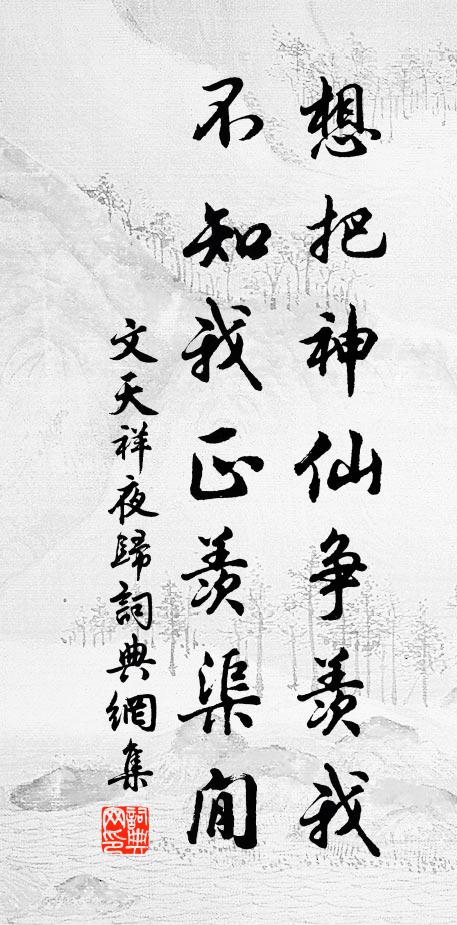 想把神仙争羨我
不知我正羨渠閒
文天祥夜歸詞典網集
詞典网印